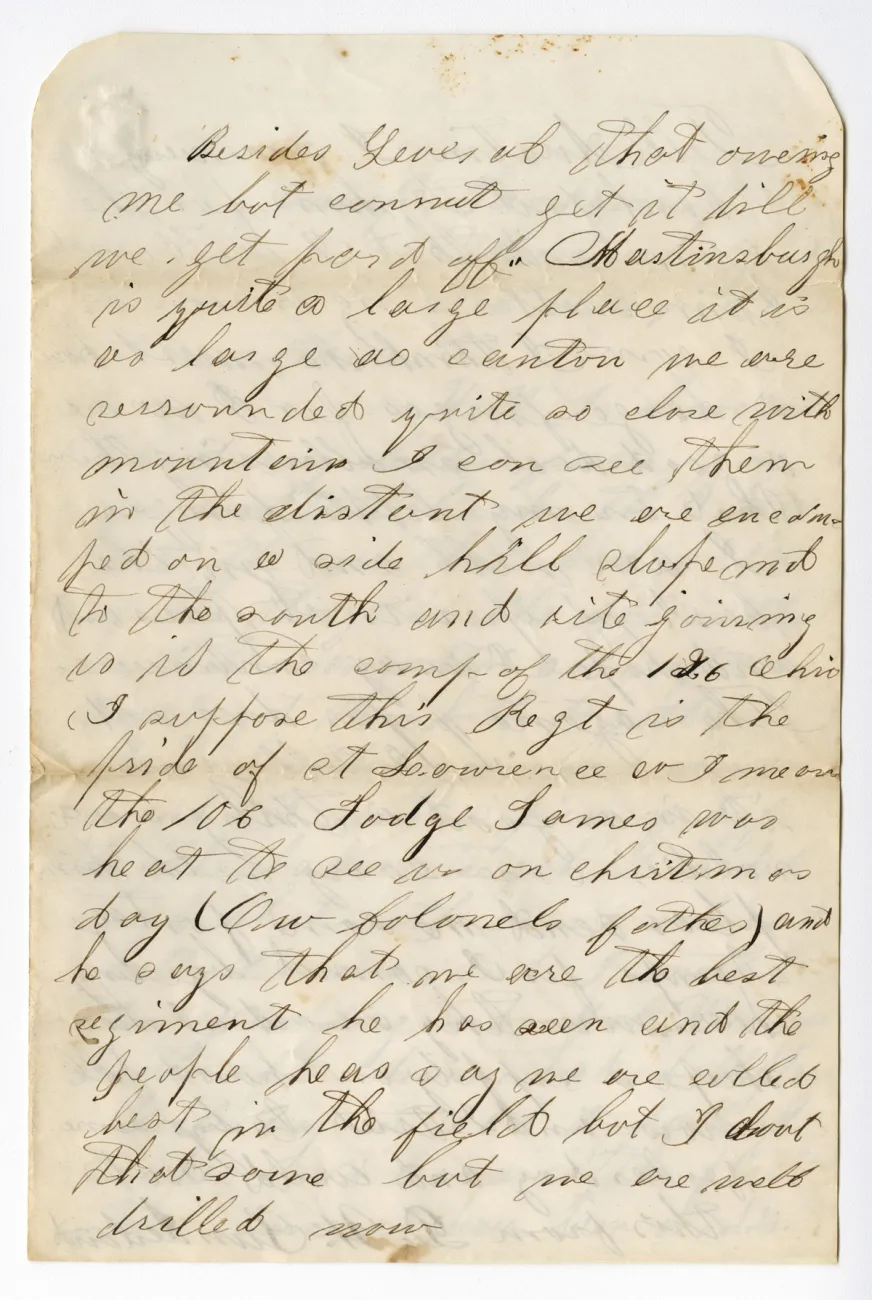 Besides Several that oweing
me but connut get it till
we get paid off" Martinsburgh
is quite a large place it is
as large as canton we are
serrounded quite so close with
mountains I can see them
in the distant we are encam-
ped on a side hill slopeind
to the south and rite joining
us is the camp of the 126 Ohio
(I suppose this Regt is the
pride of st Lawrence as I mean
the 106 Judge James was
heat to see us on christmas
day (Our Colonels father) and
he says that we are the best
regiment he has seen and the
people hear say we are called
best in the field but I dout
that some but we are well
drilled now